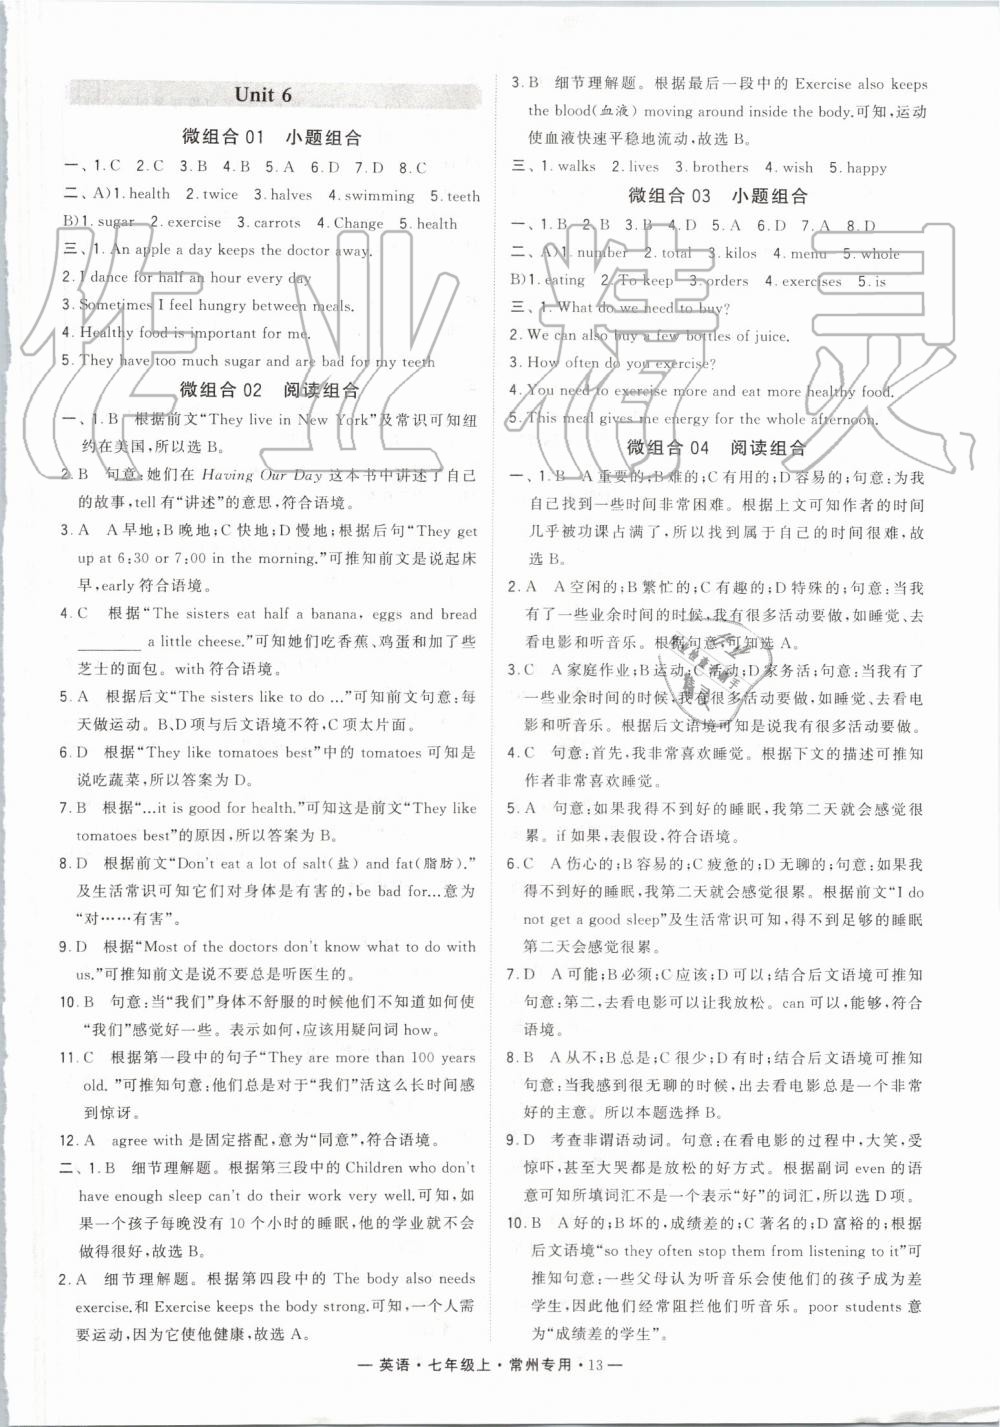 Unit 6
微组合 01 小题组合
一、1. C 2. C 3. B 4. B 5. A 6. D 7. D 8. C
二、A)1. health 2. twice 3. halves 4. swimming 5. teeth
B)1. sugar 2. exercise 3. carrots 4. Change 5. health
三、1. An apple a day keeps the doctor away.
2. I dance for half an hour every day
3. Sometimes I feel hungry between meals.
4. Healthy food is important for me.
5. They have too much sugar and are bad for my teeth
微组合 02 阅读组合
一、1. B 根据前文“They live in New York”及常识可知纽
约在美国,所以选 B。
2. B 句意:她们在 Having Our Day 这本书中讲述了自己
的故事,tell 有“讲述”的意思,符合语境。
3. A A 早地;B 晚地;C 快地;D 慢地;根据后句“They get
up at 6:30 or 7:00 in the morning.”可推知前文是说起床
早,early 符合语境。
4. C 根据“The sisters eat half a banana, eggs and bread
________ a little cheese.”可知她们吃香蕉、鸡蛋和加了些
芝士的面包。with 符合语境。
5. A 根据后文“The sisters like to do ...”可知前文句意:每
天做运动。B、D 项与后文语境不符,C 项太片面。
6. D 根据“They like tomatoes best”中的 tomatoes 可知是
说吃蔬菜,所以答案为 D。
7. B 根据“...it is good for health.”可知这是前文“They like
tomatoes best”的原因,所以答案为 B。
8. D 根据前文“Don't eat a lot of salt(盐) and fat(脂肪).”
及生活常识可知它们对身体是有害的,be bad for...意为
“对……有害”。
9. D 根据“Most of the doctors don't know what to do with
us.”可推知前文是说不要总是听医生的。
10. B 句意:当“我们”身体不舒服的时候他们不知道如何使
“我们”感觉好一些。表示如何,应该用疑问词 how。
11. C 根据第一段中的句子“They are more than 100 years
old. ”可推知句意:他们总是对于“我们”活这么长时间感
到惊讶。
12. A agree with 是固定搭配,意为“同意”,符合语境。
二、1. B 细节理解题。根据第三段中的 Children who don't
have enough sleep can't do their work very well.可知,如
果一个孩子每晚没有 10 个小时的睡眠,他的学业就不会
做得很好,故选 B。
2. A 细节理解题。根据第四段中的 The body also needs
exercise.和 Exercise keeps the body strong.可知,一个人需
要运动,因为它使他健康,故选 A。
3. B 细节理解题。根据最后一段中的 Exercise also keeps
the blood(血液) moving around inside the body.可知,运动
使血液快速平稳地流动,故选 B。
三、1. walks 2. lives 3. brothers 4. wish 5. happy
微组合 03 小题组合
一、1. B 2. B 3. B 4. D 5. A 6. D 7. A 8. D
二、A)1. number 2. total 3. kilos 4. menu 5. whole
B)1. eating 2. To keep 3. orders 4. exercises 5. is
三、1. What do we need to buy?
2. We can also buy a few bottles of juice.
3. How often do you exercise?
4. You need to exercise more and eat more healthy food.
5. This meal gives me energy for the whole afternoon.
微组合 04 阅读组合
一、1. B A 重要的;B 难的;C 有用的;D 容易的;句意:为我
自己找到一些时间非常困难。根据上文可知作者的时间
几乎被功课占满了,所以找到属于自己的时间很难,故
选 B。
2. A A 空闲的;B 繁忙的;C 有趣的;D 特殊的;句意:当我
有了一些业余时间的时候,我有很多活动要做,如睡觉、去
看电影和听音乐。根据句意,可知选 A。
3. C A 家庭作业;B 运动;C 活动;D 家务活;句意:当我有了
一些业余时间的时候,我有很多活动要做,如睡觉、去看电
影和听音乐。根据后文语境可知是说我有很多活动要做。
4. C 句意:首先,我非常喜欢睡觉。根据下文的描述可推知
作者非常喜欢睡觉。
5. A 句意:如果我得不到好的睡眠,我第二天就会感觉很
累。if 如果,表假设,符合语境。
6. C A 伤心的;B 容易的;C 疲惫的;D 无聊的;句意:如果我
得不到好的睡眠,我第二天就会感觉很累。根据前文“I do
not get a good sleep”及生活常识可知,得不到足够的睡眠
第二天会感觉很累。
7. D A 可能;B 必须;C 应该;D 可以;结合后文语境可推知
句意:第二,去看电影可以让我放松。can 可以,能够,符合
语境。
8. B A 从不;B 总是;C 很少;D 有时;结合后文语境可推知
句意:当我感到无聊的时候,出去看电影总是一个非常
好的主意。所以本题选择 B。
9. D 考查非谓语动词。句意:在看电影的过程中,大笑,受
惊吓,甚至大哭都是放松的好方式。根据副词 even 的语
意可知所填词汇不是一个表示“好”的词汇,所以选 D。
10. B A 好的;B 坏的,成绩差的;C 著名的;D 富裕的;根据
后文语境“so they often stop them from listening to it”可
推知句意:一些父母认为听音乐会使他们的孩子成为差
学生,因此他们经常阻拦他们听音乐。poor students 意
为“成绩差的学生”。
— 英语·七年级上·常州专用·13 —
作业精灵